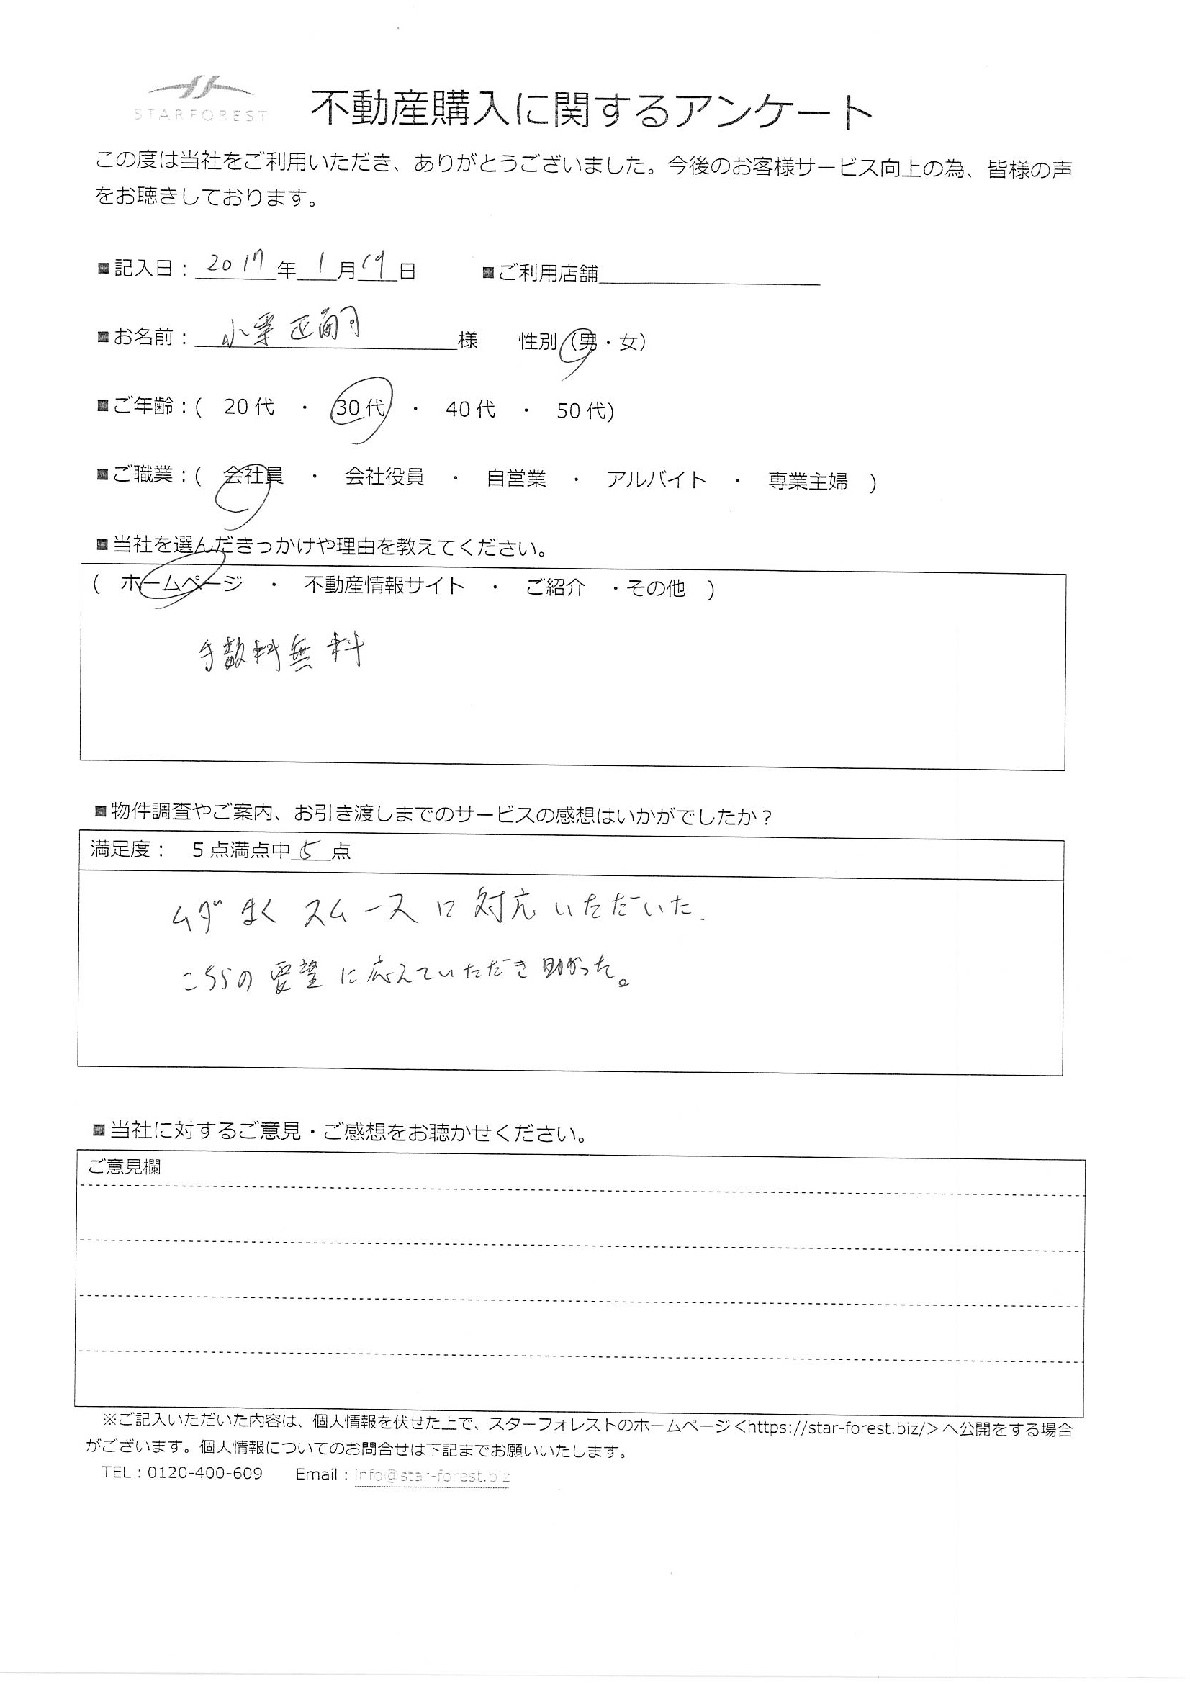 STARFOREST
不動産購入に関するアンケート
この度は当社をご利用いただき、ありがとうございました。今後のお客様サービス向上の為、皆様の声
をお聴きしております。
■記入日：2017年1月19日　■ご利用店舗
■お名前：小栗正嗣様　性別（男・女）
■ご年齢：( 20代 ・ 30代 ・ 40代 ・ 50代)
■ご職業：( 会社員 ・ 会社役員 ・ 自営業 ・ アルバイト ・ 専業主婦 )
■当社を選んだきっかけや理由を教えてください。
( ホームページ ・ 不動産情報サイト ・ ご紹介 ・その他 )
手数料無料
■物件調査やご案内、お引き渡しまでのサービスの感想はいかがでしたか？
満足度： 5点満点中5点
ムダなくスムースに対応いただいた.
こちらの要望に応えていただき助かった。
■当社に対するご意見・ご感想をお聴かせください。
ご意見欄
※ご記入いただいた内容は、個人情報を伏せた上で、スターフォレストのホームページ<https://star-forest.biz/>へ公開をする場合
がございます。個人情報についてのお問合せは下記までお願いいたします。
TEL：0120-400-609　Email：info@star-forest.biz